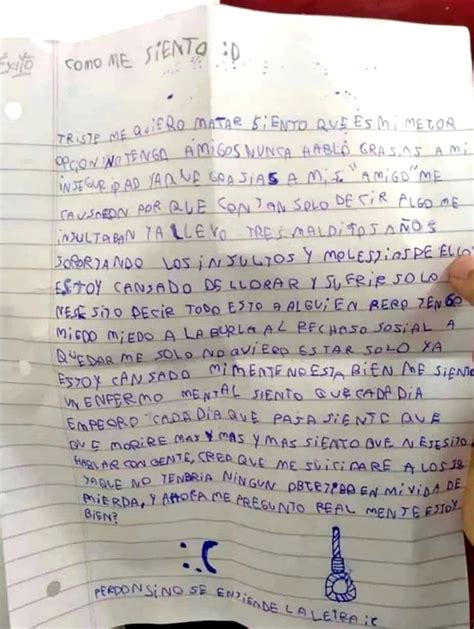 Exito
COMO ME SIENTO :D
TRISTE ME QUIERO MATAR SIENTO QUE ES MI METOR
OPCION NO TENGO AMIGOS NUNCA HABLO GRASIAS A MI
INSEGURIDAD YA QUE GRASIAS A MIS "AMIGO" ME
CAUSARON POR QUE CON TAN SOLO DECIR ALGO ME
INSULTABAN YA LLEVO TRES MALDITOS AÑOS
SOPORTANDO LOS INSULTOS Y MOLESTIAS DE ELLO
ESTOY CANSADO DE LLORAR Y SUFRIR SOLO
NESESITO DECIR TODO ESTO A ALGUIEN PERO TENGO
MIEDO MIEDO A LA BURLA AL RECHASO SOSIAL A
QUEDARME SOLO NO QUIERO ESTAR SOLO YA
ESTOY CANSADO MI MENTE NO ESTA BIEN ME SIENTO
UN ENFERMO MENTAL SIENTO QUE CADA DIA
EMPEORO CADA DIA QUE PASA SIENTO QUE
QUE MORIRE MAS Y MAS Y MAS SIENTO QUE NESESITO
HABLAR CON GENTE, CREO QUE ME SUICIDARE A LOS 18
YA QUE NO TENDRIA NINGUN OBTETIBO EN MI VIDA DE
MIERDA, Y AHORA ME PREGUNTO REALMENTE ESTOY
BIEN?
:(
PERDON SI NO SE ENTIENDE LA LETRA :C